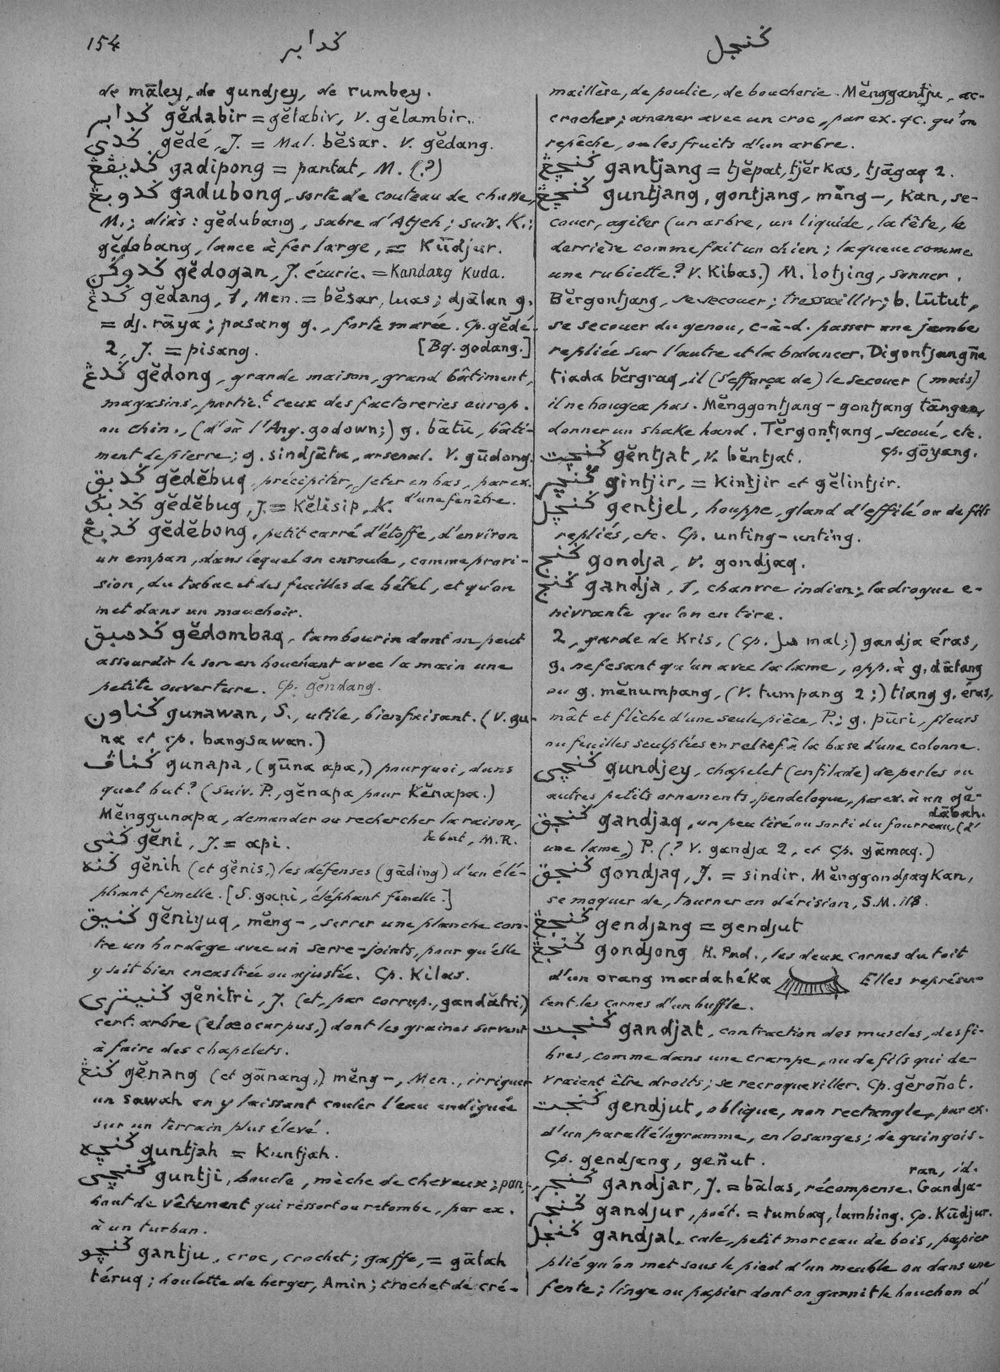 154
ݢدابر
ݢنجل
de māley, de gundjey, de rumbey.
ݢدابر gĕdabir = gĕtabir, v. gĕlambir.
ݢدى gĕdé, J. = Mal. bĕsar. V. gĕdang.
ݢديڤڠ gadipong = pantat, M. (?)
ݢدوبڠ gadubong, sorte de couteau de chasse,
M.; aliàs: gĕdubang, sabre d'Atjeh; suiv. K.:
gĕdobang, lance à fer large, = Kūdjur.
ݢدوݢن gĕdogan, J. écurie. = Kandang Kuda.
ݢدڠ gĕdang, 1, Men. = bĕsar, luas; djālan g.
= dj. rāya; pasang g., forte marée. Cp. gĕdé.
2, J. = pisang. [Bg. godang.]
ݢدڠ gĕdong, grande maison, grand bâtiment,
magasins, partic.t ceux des factoreries europ.
ou chin., (d'où l'Ang. godown;) g. bātu, bâti-
ment de pierre; g. sindjāta, arsenal. V. gūdong.
ݢدبق gĕdĕbuq, précipiter, jeter en bas, par ex.
d'une fenêtre.
ݢدبݢ gĕdĕbug, J. = Kĕlisip, K.
ݢدبڠ gĕdĕbong, petit carré d'étoffe, d'environ
un empan, dans lequel on enroule, comme provi-
sion, du tabac et des feuilles de bétel, et qu'on
met dans un mouchoir.
ݢدمبق gĕdombaq, tambourin dont on peut
assourdir le son en bouchant avec la main une
petite ouverture. Cp. gĕndang.
ݢناون gunawan, S., utile, bienfaisant. (V. gu-
na et cp. bangsawan.)
ݢناڤ gunapa, (gūna apa,) pourquoi, dans
quel but? (Suiv. P., gĕnapa pour Kĕnapa.)
Mĕnggunapa, demander ou rechercher la raison,
le but, M.R.
ݢنى gĕni, J. = api.
ݢنه gĕnih (et gĕnis,) les défenses (gāding) d'un élé-
phant femelle. [S. gani, éléphant femelle.]
ݢنيق gĕniyuq, mĕng-, serrer une planche con-
tre un bordage avec un serre-joints, pour qu'elle
y soit bien encastrée ou ajustée. Cp. Kilas.
ݢنيترى gĕnitri, J. (et, par corrup., gandătri,)
cert. arbre (elæocarpus,) dont les graines servent
à faire des chapelets.
ݢنڠ gĕnang (et gānang,) mĕng-, Men., irriguer
un sawah en y laissant couler l'eau endiguée
sur un terrain plus élevé.
ݢنچه guntjah = Kuntjah.
ݢنچى guntji, boucle, mèche de cheveux; pan,
bout de vêtement qui ressort ou retombe, par ex.
à un turban.
ݢنچو gantju, croc, crochet; gaffe, = gālah
téruq; houlette de berger, Amin; crochet de cré-
maillère, de poulie, de boucherie. Mĕnggantju, ac-
crocher; amener avec un croc, par ex. qc. qu'on
repêche, ou les fruits d'un arbre.
ݢنچڠ gantjang = tjĕpat, tjĕrkas, tjāgaq 2.
ݢنچڠ guntjang, gontjang, mĕng-, Kan, se-
couer, agiter (un arbre, un liquide, la tête, le
derrière comme fait un chien; la queue comme
une rubiette? V. Kibas.) M. lotjing, sonner.
Bĕrgontjang, se secouer; tressaillir; b. lūtut,
se secouer du genou, c-à-d. passer une jambe
repliée sur l'autre et la balancer. Digontjangña
tiada bĕrgraq, il (s'efforça de) le secouer (mais)
il ne bougea pas. Mĕnggontjang-gontjang tāngan,
donner un shake hand. Tĕrgontjang, secoué, etc.
Cp. gōyang.
ݢنچت gĕntjat, v. bĕntjat.
ݢنچير gintjir, = Kintjir et gĕlintjir.
ݢنچل gentjel, houppe, gland d'effilé ou de fils
repliés, etc. Cp. unting-unting.
ݢنج gondja, v. gondjaq.
ݢنج gandja, 1, chanvre indien; la drogue e-
nivrante qu'on en tire.
2, garde de Kris, (Cp. مل mal;) gandja éras,
g. ne faisant qu'un avec la lame, opp. à g. dātang
ou g. mĕnumpang, (V. tumpang 2;) tiang g. éras,
mât et flèche d'une seule pièce, P.; g. pūri, fleurs
ou feuilles sculptées en relief à la base d'une colonne.
ݢنجى gundjey, chapelet (enfilade) de perles ou
autres petits ornements, pendeloque, par ex. à un gĕ-
dābah.
ݢنجق gandjaq, un peu tiré ou sorti du fourreau, (d'
une lame,) P. (? V. gandja 2, et Cp. gāmaq.)
ݢنجق gondjaq, J. = sindir. Mĕnggondjaqkan,
se moquer de, tourner en dérision, S.M. 118.
ݢنجڠ gendjang = gendjut
ݢنجڠ gondjong H. Pad., les deux cornes du toit
d'un orang mardahéka Elles représen-
tent les cornes d'un buffle.
ݢنجت gandjat, contraction des muscles, des fi-
bres, comme dans une crampe, ou de fils qui de-
vraient être droits; se recroqueviller. Cp. gĕroñot.
ݢنجت gendjut, oblique, non rectangle, par ex.
d'un parallélogramme, en losanges; de guingois.
Cp. gendjang, geñut.
ran, id.
ݢنجر gandjar, J. = bālas, récompense. Gandja-
ݢنجر gandjur, poét. = tumbaq, lambing. Cp. Kūdjur.
ݢنجل gandjal, cale, petit morceau de bois, papier
plié qu'on met sous le pied d'un meuble ou dans une
fente; linge ou papier dont on garnit le bouchon d'